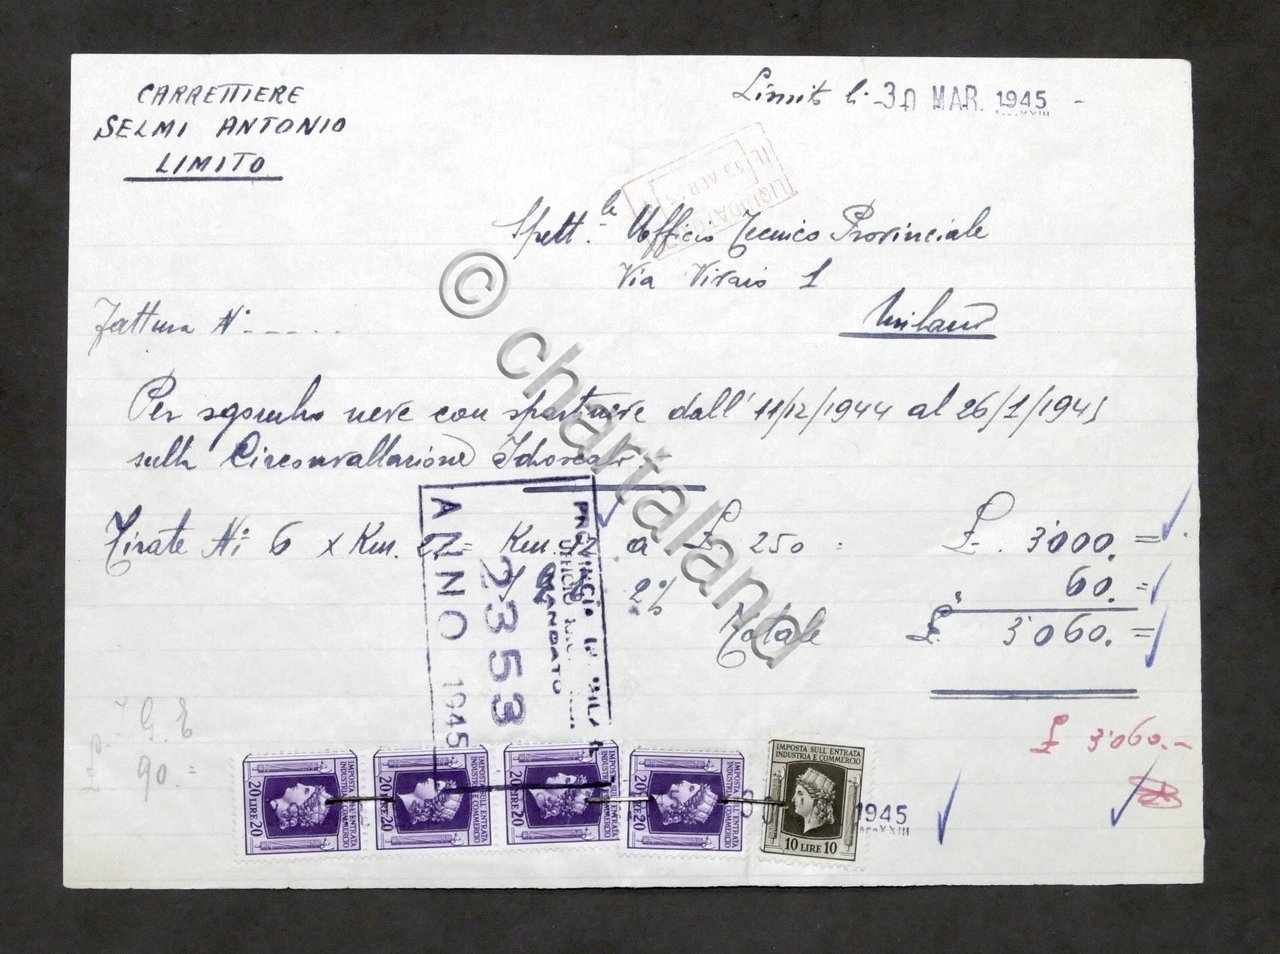 CARRETTIERE
SELMI ANTONIO
LIMITO
Limito li 30 MAR. 1945
Anno XXIII
LIQUIDATO
IL 13 APR
Spett.le Ufficio Tecnico Provinciale
Via Vivaio 1
Milano
Fattura N. - - - - -
Per sgombro neve con spartineve dall' 11/12/1944 al 26/1/1945
sulla Circonvallazione Idroscalo
Tirate Ni 6 x Km. 2 = Km. 12 a £. 250 = £. 3'000. =
2% 60. =
Totale £. 3'060. =
PROVINCIA DI MILANO
UFFICIO
MANDATO
23353
ANNO 1945
£ 3'060.-
I.G.E
90.=
IMPOSTA SULL'ENTRATA
INDUSTRIA E COMMERCIO
20 LIRE 20
IMPOSTA SULL'ENTRATA
INDUSTRIA E COMMERCIO
20 LIRE 20
IMPOSTA SULL'ENTRATA
INDUSTRIA E COMMERCIO
20 LIRE 20
IMPOSTA SULL'ENTRATA
INDUSTRIA E COMMERCIO
20 LIRE 20
IMPOSTA SULL'ENTRATA
INDUSTRIA E COMMERCIO
10 LIRE 10
1945
Anno XXIII
© chartaland